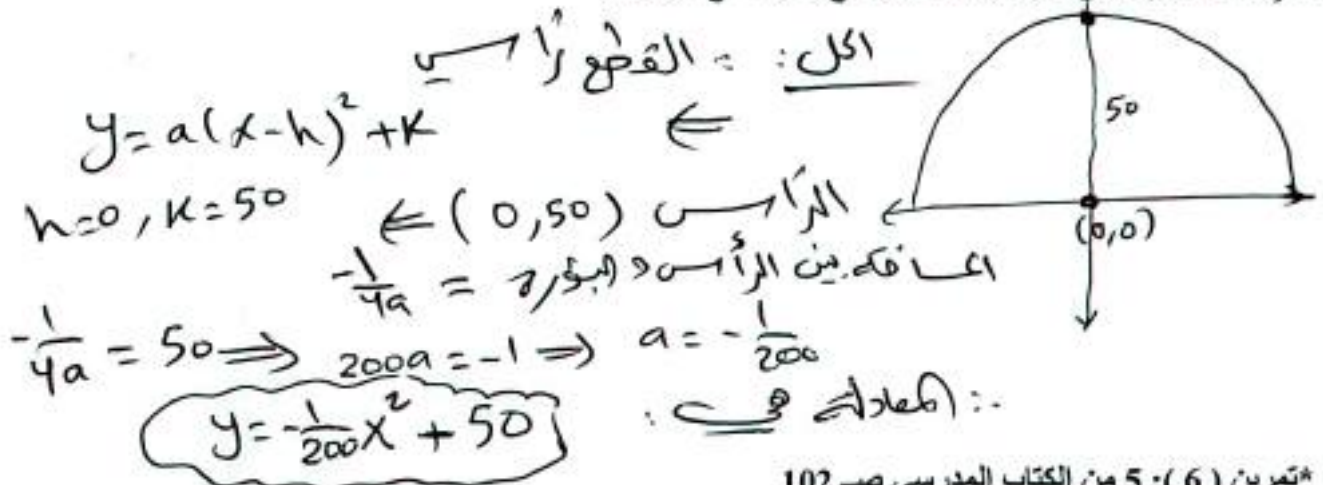 الحل: ∵ القطع رأسي
50
⇐ y = a(x-h)² + k
الرأس (0,50) ⇐ h=0, k=50
(0,0)
المسافة بين الرأس والبؤرة = -1/4a
-1/4a = 50 ⟹ 200a = -1 ⟹ a = -1/200
∴ المعادلة هي:
y = -1/200 x² + 50
*تمرين ( 6 )- 5 من الكتاب المدرسي صـ 102